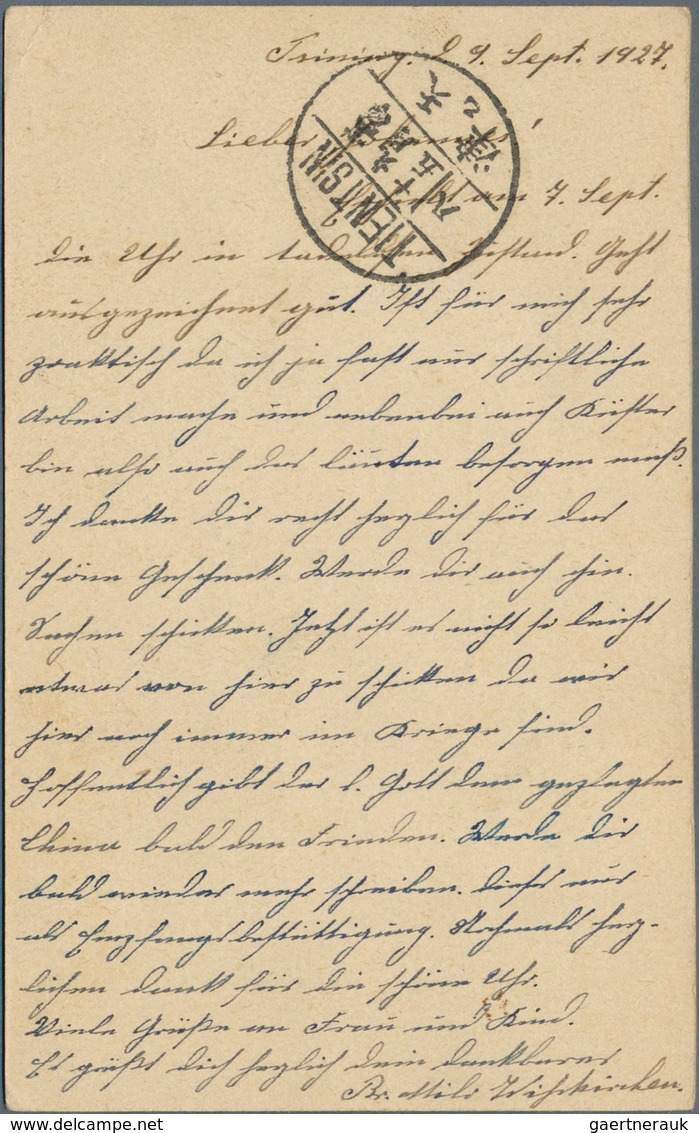 Tsining, d. 9. Sept. 1927.
Lieber Johannes!
Erhielt am 7. Sept.
die Uhr in tadellosem Zustand. Geht
ausgezeichnet gut. Ist für mich sehr
praktisch da ich ja fast nur schriftliche
Arbeit mache und nebenbei auch Küster
bin also auch das läuten besorgen muß.
Ich danke dir recht herzlich für das
schöne Geschenk. Werde dir auch chin.
Sachen schicken. Jetzt ist es nicht so leicht
etwas von hier zu schicken da wir
hier noch immer im Kriege sind.
Hoffentlich gibt der l. Gott dem geplagten
China bald den Frieden. Werde dir
bald wieder mehr schreiben. Dieses nur
als Empfangsbestättigung. Nochmals herz-
lichen Dank für die schöne Uhr.
Viele Grüße an Frau und Kind.
Es grüßt dich herzlich dein dankbarer
Br. Milo
TIENTSIN
天津
gaertnerauk